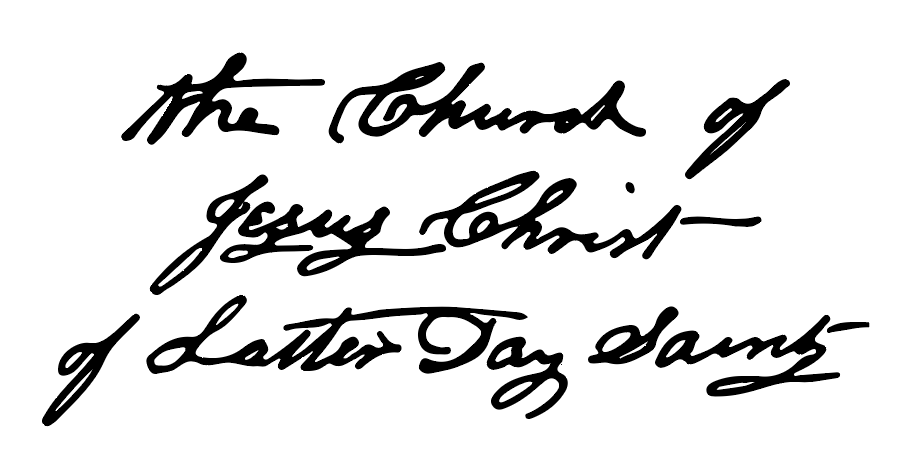 the Church of
Jesus Christ
of Latter Day Saints